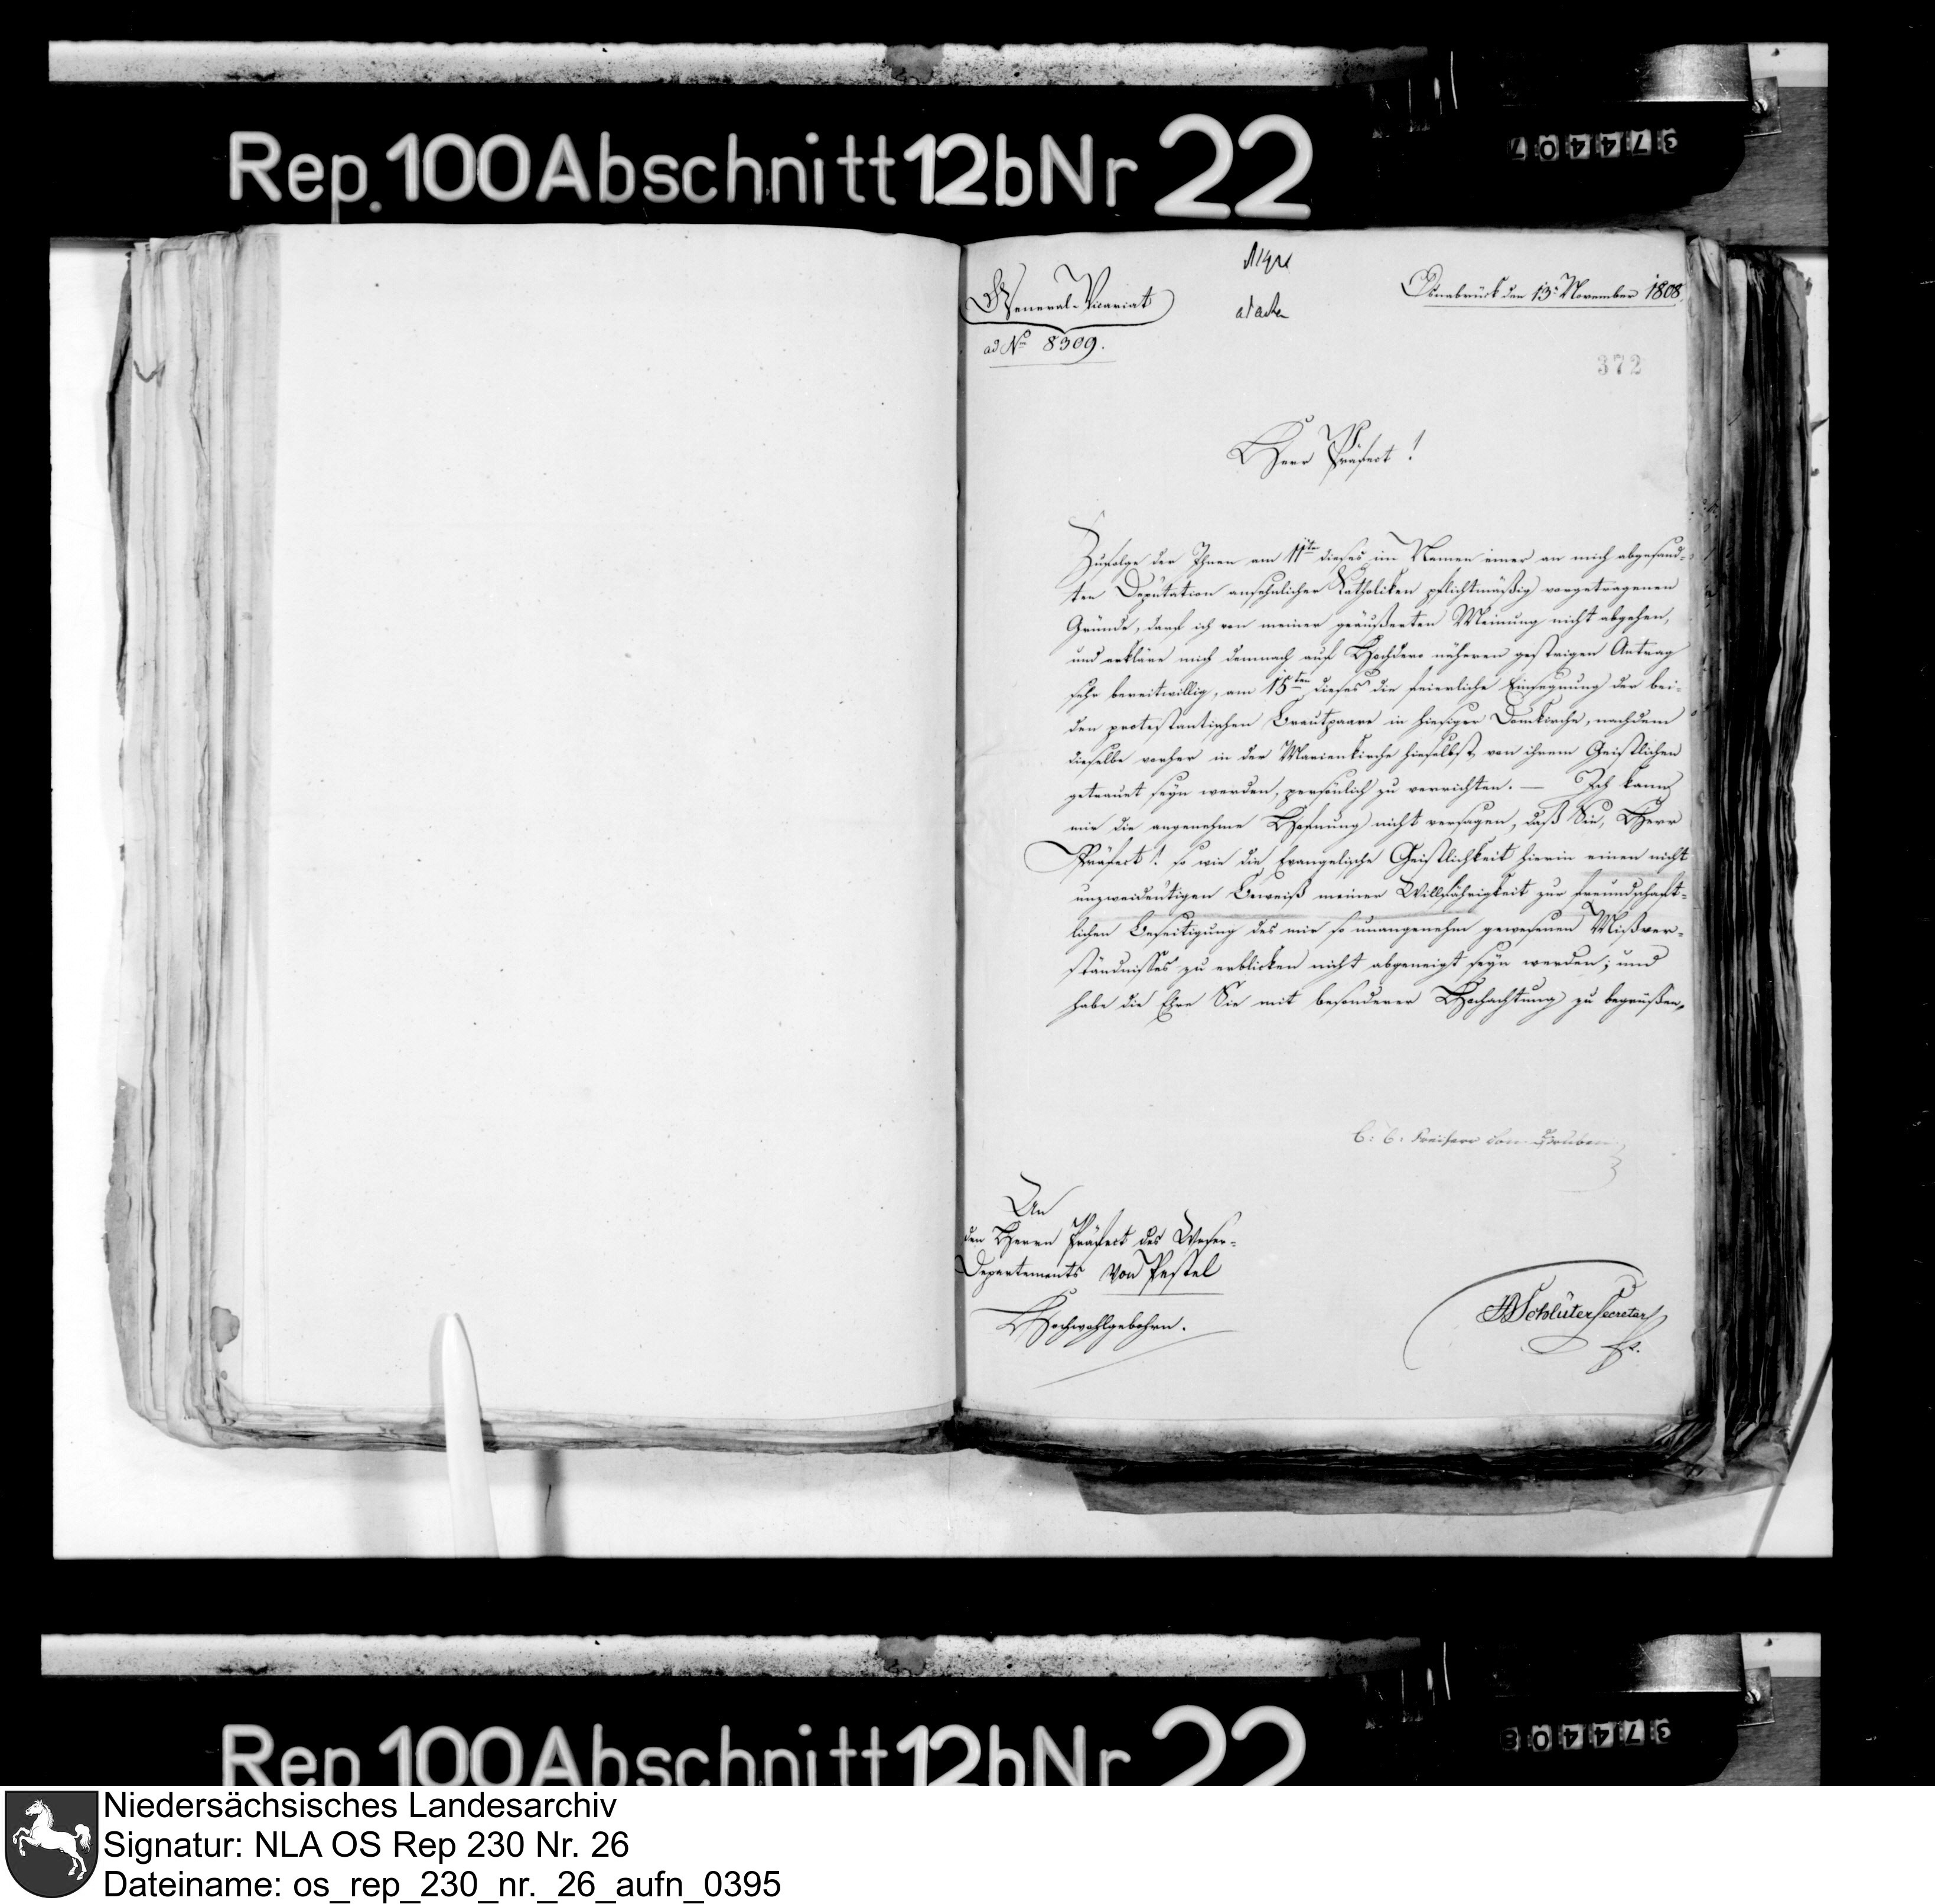 Rep. 100 Abschnitt 12b Nr 22
374407
General-Vicariat
ad No 8309.
ad acta
Osnabrück den 13. November 1808.
372
Herr Präfect!
Zufolge der Ihnen am 11ten dieses im Namen einer an mich abgesand-
ten Deputation ansehnlicher Katholiken pflichtmäßig vorgetragenen
Gründe, darf ich von meiner geäußerten Meinung nicht abgehen,
und erkläre mich demnach auf Hochdero näheren gestrigen Antrag
sehr bereitwillig, am 15ten dieses die feierliche Einsegnung der bei-
den protestantischen Brautpaare in hiesiger Domkirche, nachdem
dieselbe vorher in der Marienkirche hieselbst von ihrem Geistlichen
getrauet seyn werden, persönlich zu verrichten. — Ich kann
mir die angenehme Hofnung nicht versagen, daß Sie, Herr
Präfect! so wie die Evangelische Geistlichkeit hierin einen nicht
unzweideutigen Beweiß meiner Willfährigkeit zur freundschaft-
lichen Beseitigung des mir so unangenehm gewesenen Mißver-
ständnisses zu erblicken nicht abgeneigt seyn werden; und
habe die Ehre Sie mit besonderer Hochachtung zu begrüßen,
C: C: Freiherr von Gruben
An
den Herrn Präfect des Weser-
Departements von Pestel
Hochwohlgebohrn.
Schlüter Secretar
Rep 100 Abschnitt 12b Nr 22
374408
Niedersächsisches Landesarchiv
Signatur: NLA OS Rep 230 Nr. 26
Dateiname: os_rep_230_nr._26_aufn_0395